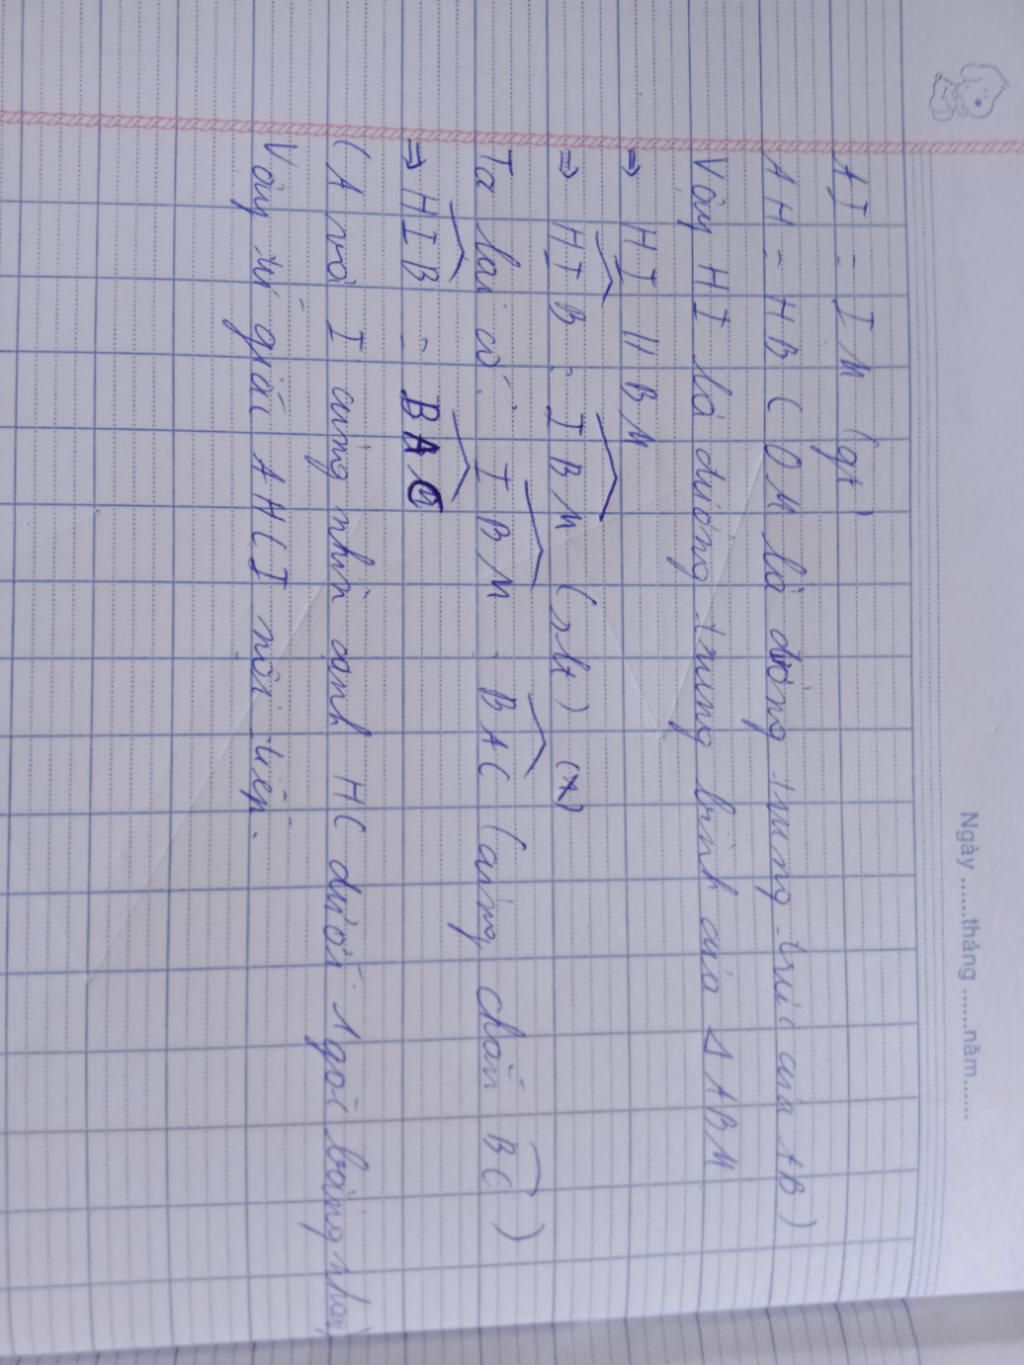 Ngày ......tháng ......năm......
AI = IM (gt)
AH = HB (OM là đường trung trực của AB)
Vậy HI là đường trung bình của Δ ABM
⇒ HI // BM
⇒ HIB = IBM (slt) (*)
Ta lại có: IBM = BAC (cùng chắn BC)
⇒ HIB = BAC
(A và I cùng nhìn cạnh HC dưới 1 góc bằng nhau)
Vậy tứ giác AHCI nội tiếp.